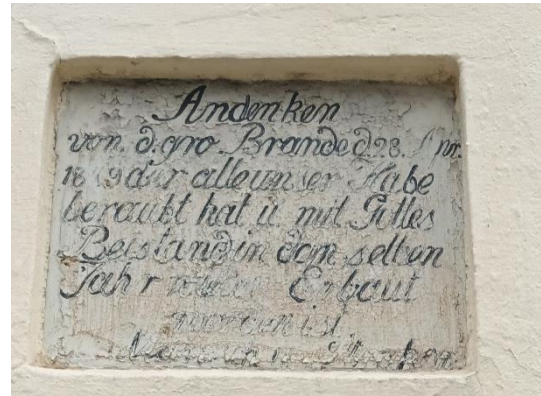 Andenken
von d. gro. Brande d. 28. Apr.
der alle unser Habe
beraubt hat u. mit Gottes
Beistand in dem selben
Jahr Erbaut
worden ist